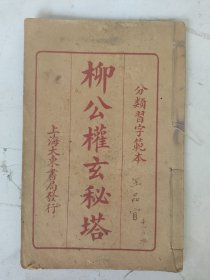 分類習字範本
柳公權玄秘塔
上海大東書局發行